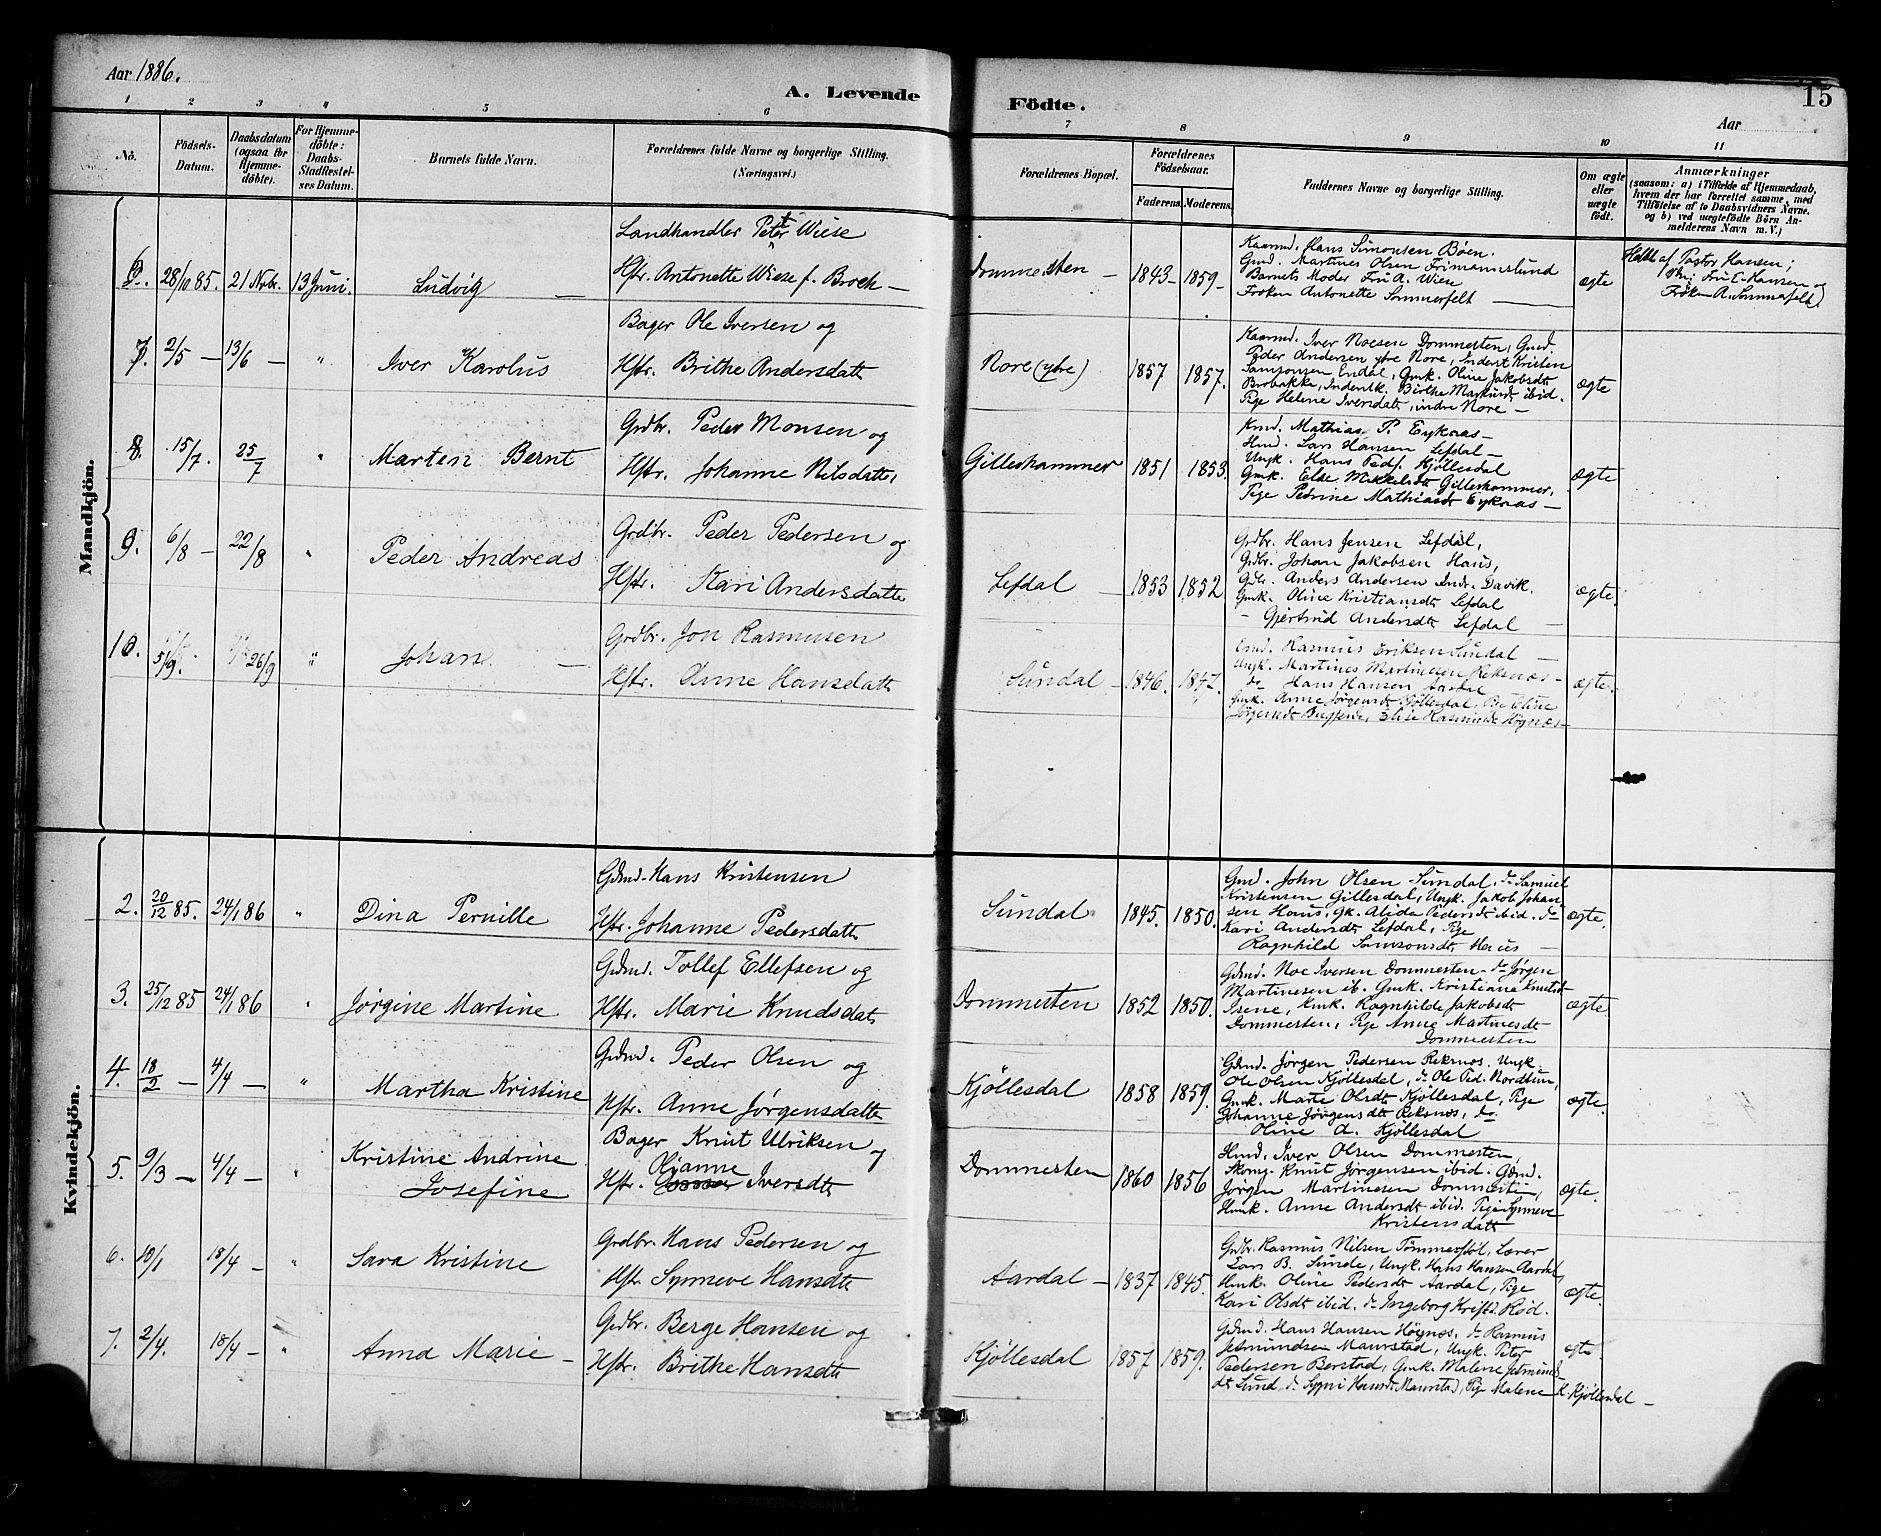 Aar 1886.
A. Levende Födte.
15
Aar
1 2 3 4 5 6 7 8 9 10 11
No.
Födsels-Datum.
Daabsdatum (ogsaa for Hjemme-döbte).
For Hjemme-döbte: Daabs-Stadfestel-ses Datum.
Barnets fulde Navn.
Forældrenes fulde Navne og borgerlige Stilling. (Næringsvei.)
Forældrenes Bopæl.
Forældrenes Födselsaar.
Faderens. Moderens.
Faddernes Navne og borgerlige Stilling.
Om ægte eller uægte født.
Anmærkninger
(saasom: a) i Tilfælde af Hjemmedaab,
hvem der har forrettet samme, med
Tilføielse af to Daabsvidners Navne.
og b) ved uægtefödte Börn An-
melderens Navn m. V.)
Mandkjön.
6. 28/10 85. 21 Nvbr. 13 Juni. Ludvig —
Landhandler Peter Wiese
Hstr. Antonette Wiese f. Broch —
Dommesten — 1843 — 1859 —
Kaarmd. Hans Simonsen Böen.
Gmd. Martines Olsen Frimannslund
Barnets Moder Fru A. Wiese
Frøken Antonette Sommerfelt —
ægte
af Pastor Hansen;
Fru E. Hansen og
Frøken A. Sommerfelt)
7. 2/5 — 13/6 — " Iver Karolus
Bager Ole Iversen og
Hstr. Brithe Andersdatt
Nore (ytre) 1857 1857.
Kaarmd. Iver Noesen Dommesten, Gmd
Peder Andersen ytre Nore, Inderst Kristen
Samsonsen Endal, Gmk. Oline Jakobsdt
Brobakke, Inderstk. Birthe Markusdt ibid.
Pige Helene Iversdatt, indre Nore —
ægte
8. 15/7. 25/7 " Marten Bernt
Grdbr. Peder Monsen og
Hstr. Johanne Nilsdatter
Gilleshammer 1851 1853.
Mathias P. Eyknas —
Hmd. Lars Hansen Lefdal —
Ungk. Hans Peds. Kjöllesdal
Gmk. Else Mikkelsdt Gilleshammer,
Pige Petrine Mathiasdt Eyknas —
ægte
9. 6/8 — 22/8 " Peder Andreas
Grdbr. Peder Pedersen og
Hstr. Kari Andersdatte
Lefdal — 1853 1852
Grdbr. Hans Jensen Lefdal,
Grdbr. Johan Jakobsen Haus,
Gdbr. Anders Andersen Indr. Davik.
Gmk. Oline Kristiansdt Lefdal
- Gjertrud Andersdt Lefdal —
ægte.
10. 5/9. 26/9 " Johan —
Grdbr. Jon Rasmusen
Hstr. Anne Hansdatt
Sundal — 1846. 1847.
Rasmus Eriksen Sundal —
Ungk. Martines Martinesen Reksnæs —
do Hans Hansen Aardal
Gmk. Anne Jörgensdt Kjöllesdal,
Jörgensdt Elise Rasmusdt Högnæs —
ægte.
Kvindekjön.
2. 20/12 85. 24/1 86 " Dina Pernille
Gdmd. Hans Kristensen
Hstr. Johanne Pedersdatt
Sundal 1845. 1850.
Gmd. John Olsen Sundal, do Samuel
Kristensen Gillesdal, Ungk. Jakob Johan-
sen Haus, Gk. Alida Pedersdt ibid. do
Kari Andersdt Lefdal, Pige
Ragnhild Samsonsdt Haus —
ægte.
3. 25/12 85 24/1 86 " Jørgine Martine
Gdmd. Tollef Ellefsen og
Hstr. Marie Knudsdatt
Dommesten 1852 1850.
Gdmd. Noe Iversen Dommesten — do Jörgen
Martinesen ib. Gmk. Kristiane Knutsdt
Isene, Hmk. Ragnhilde Jakobsdt
Dommesten, Pige Anne Martinesdt
Dommesten
ægte.
4. 18/2 — 4/4 — " Martha Kristine
Gdmd. Peder Olsen og
Hstr. Anne Jørgensdatte
Kjöllesdal 1858 1859.
Gdmd. Jörgen Pedersen Reksnæs. Ungk.
Ole Olsen Kjöllesdal, do Ole Ped. Nordtun,
Gmk. Marte Olsdt Kjöllesdal, Pige
Johanne Jörgensdt Reksnæs, do
Oline A. Kjöllesdal
ægte.
5. 9/3 — 4/4 — " Kristine Andrine Josefine
Bager Knut Ulriksen og
Hstr. Olianne Iversdt
Dommesten 1860 1856
Hmd. Iver Olsen Dommesten,
Skomg. Knut Jörgensen ibid. Gdmd.
Jörgen Martinesen Dommesten,
Hmk. Anne Andersdt ibid. Pige Synneve
Kristensdatt
ægte.
6. 10/1 18/4 — " Sara Kristine
Grdbr. Hans Pedersen og
Hstr Synneve Hansdt
Aardal — 1837 1845.
Grdbr. Rasmus Nilsen Tömmerstöl, Lærer
Lars B. Sunde, Ungk. Hans Hansen Aardal,
Hmk. Oline Pedersdt Aardal, Pige
Kari Olsdt ibid. do Ingeborg Rød.
ægte.
7. 2/4. 18/4 — " Anna Marie —
Grdbr. Berge Hansen og
Hstr. Brithe Hansdt
Kjöllesdal 1857 1859.
Gdmd. Hans Hansen Högnæs, do Rasmus
Jetmundsen Maurstad, Ungk. Peter
Pedersen Berstad, Gmk. Malene Jetmunds-
dt Lund, do Sygni Hansdt Maurstad, Pige Malene K. Kjöllesdal —
ægte